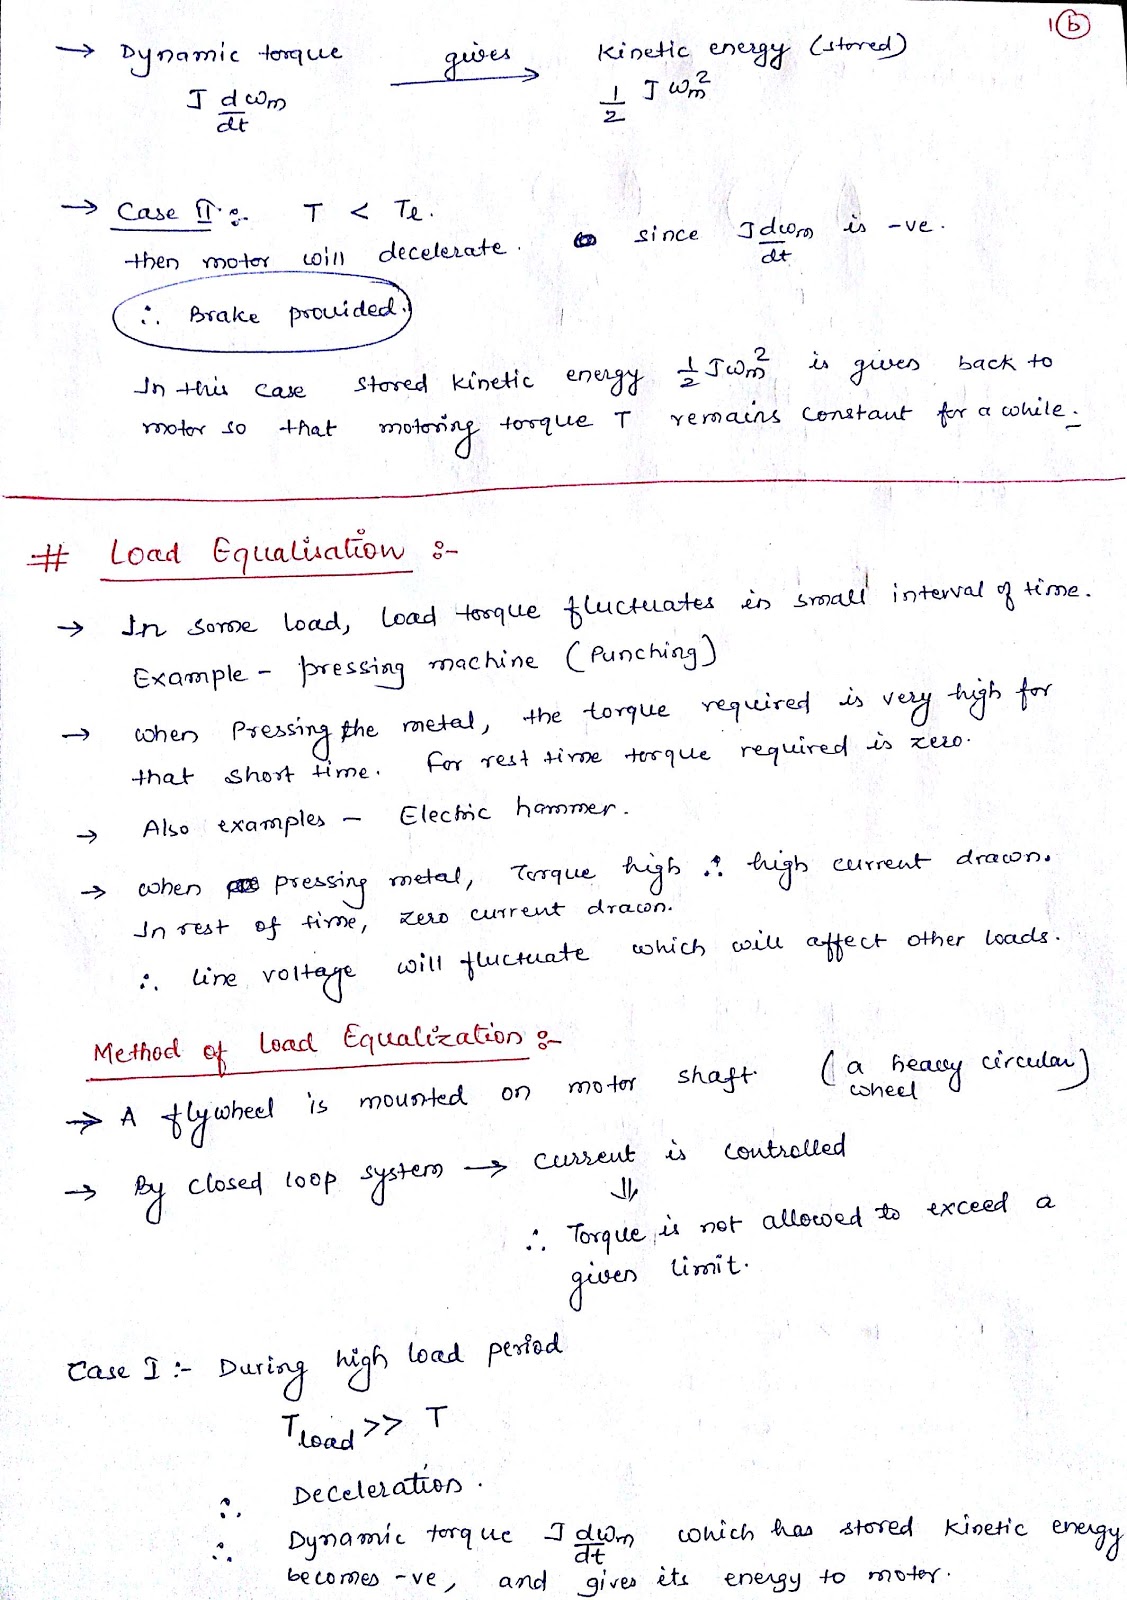 1 b
→ Dynamic torque gives Kinetic energy (stored)
J dωm/dt 1/2 J ωm²
→ Case II :- T < Te.
then motor will decelerate. since J dωm/dt is -ve.
∴ Brake provided.
In this case stored kinetic energy 1/2 Jωm² is gives back to
motor so that motoring torque T remains constant for a while.
# Load Equalisation :-
→ In some load, load torque fluctuates in small interval of time.
Example - pressing machine (Punching)
→ when Pressing the metal, the torque required is very high for
that short time. For rest time torque required is zero.
→ Also examples - Electric hammer.
→ when pressing metal, Torque high ∴ high current drawn.
In rest of time, zero current drawn.
∴ line voltage will fluctuate which will affect other loads.
Method of Load Equalization :-
→ A flywheel is mounted on motor shaft (a heavy circular
wheel)
→ By closed loop system → current is controlled
⇓
∴ Torque is not allowed to exceed a
given limit.
Case I :- During high load period
Tload >> T
∴ Deceleration.
∴ Dynamic torque J dωm/dt which has stored kinetic energy
becomes -ve, and gives its energy to motor.